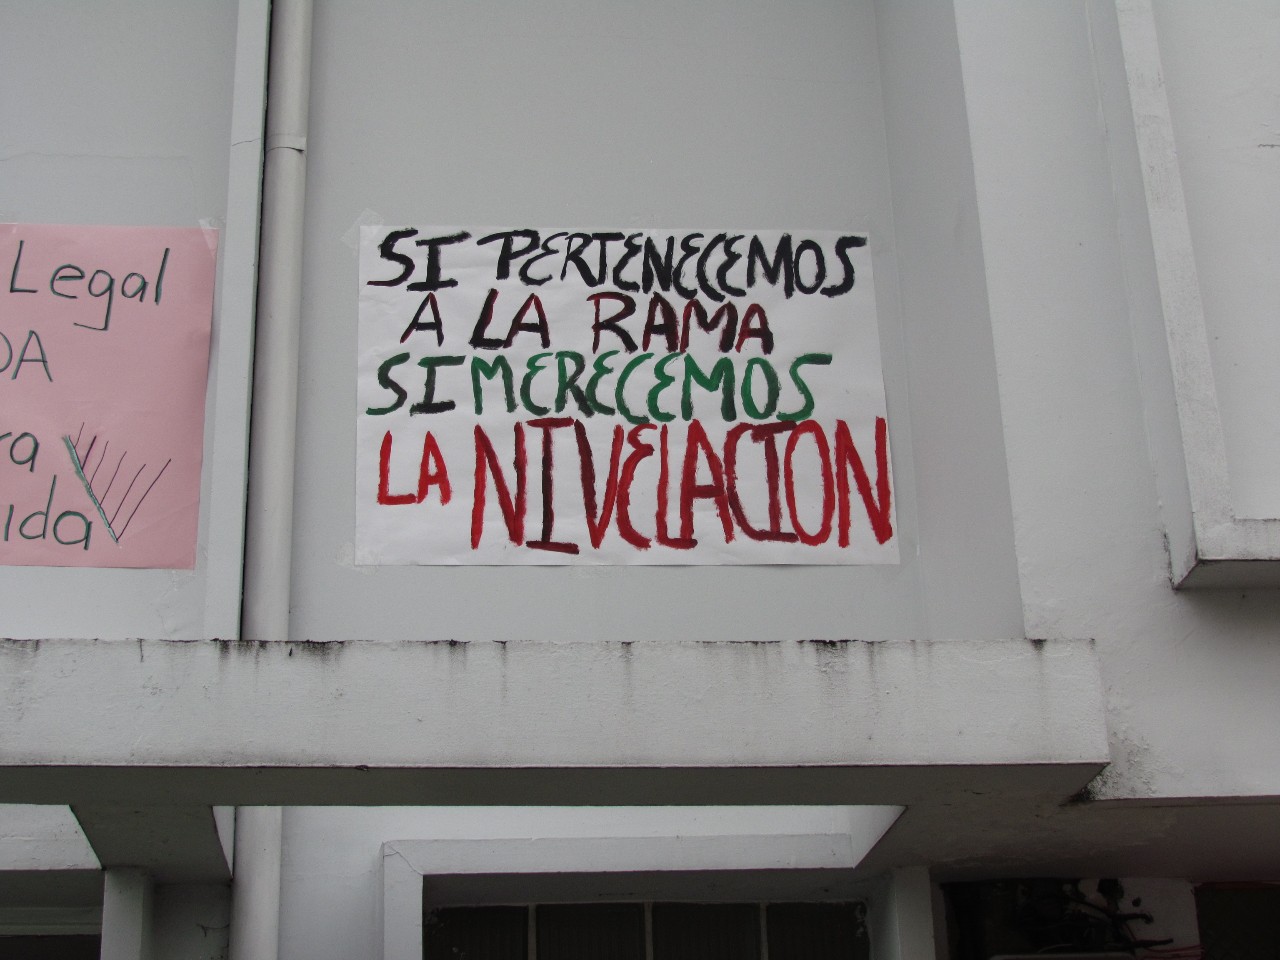 Legal
DA
ra
ida
SI PERTENECEMOS
A LA RAMA
SI MERECEMOS
LA NIVELACION